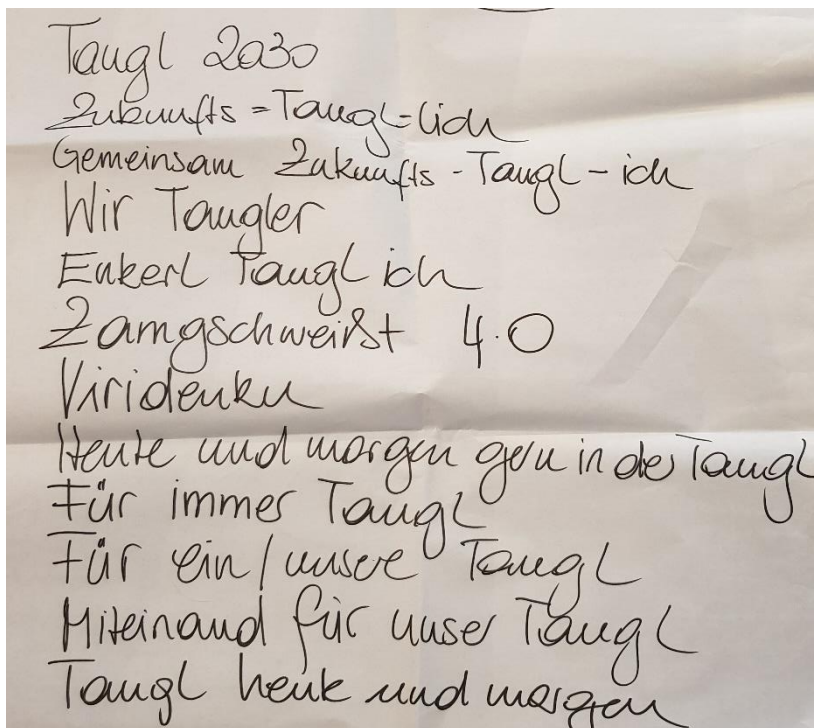 Taugl 2030
Zukunfts=Taugl=lich
Gemeinsam Zukunfts-Taugl-ich
Wir Taugler
Enkerl Taugl ich
Zamgschweißt 4.0
Viridenkn
Heute und morgen gern in der Taugl
Für immer Taugl
Für ein/unsere Taugl
Miteinand für unser Taugl
Taugl heute und morgen